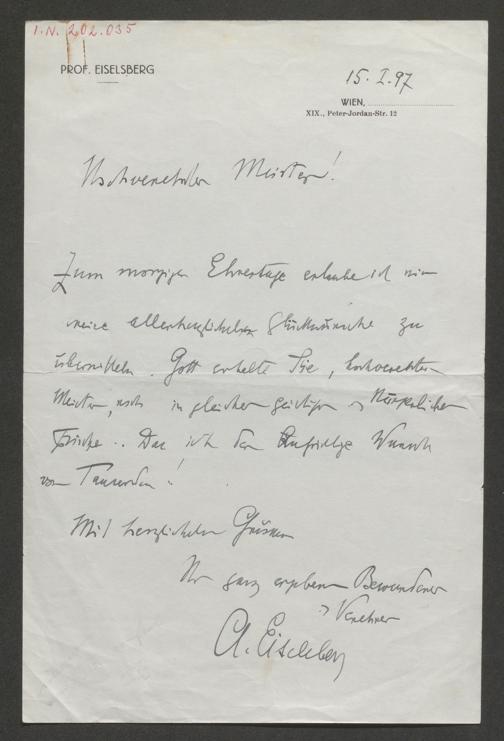 I.N. 202.035
PROF. EISELSBERG
15. I. 97
WIEN,
XIX., Peter-Jordan-Str. 12
Hochverehrter Meister!
Zum morgigen Ehrentage erlaube ich mir
meine allerherzlichsten Glückwünsche zu
übermitteln. Gott erhalte Sie, hochverehrter
Meister, noch in gleicher geistiger körperlicher
Frische.. Das ist der aufrichtige Wunsch
von Tausenden!
Mit herzlichen Grüssen
Ihr ganz ergebener Bewunderer
Verehrer
A. Eiselsberg